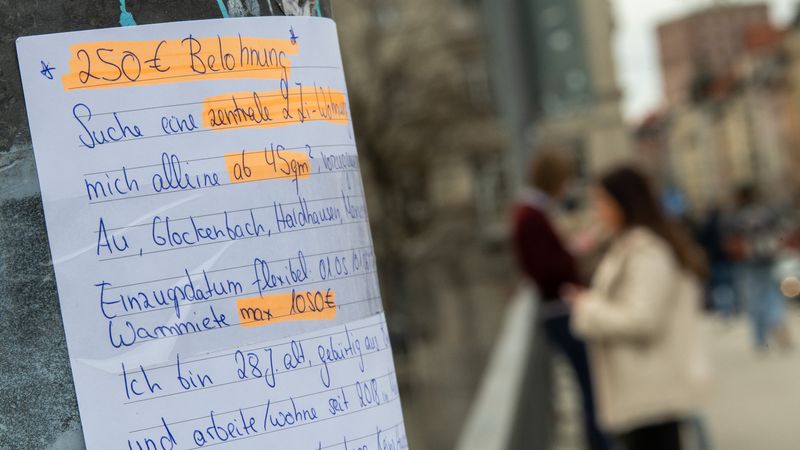 * 250€ Belohnung *
Suche eine zentrale 2 Zi-Wohnung
mich alleine ab 45qm²,
Au, Glockenbach, Haidhausen,
Einzugsdatum flexibel 01.05
Warmmiete max 1050€
Ich bin 28 J. alt, gebürtig aus
und arbeite/wohne seit 2018 in